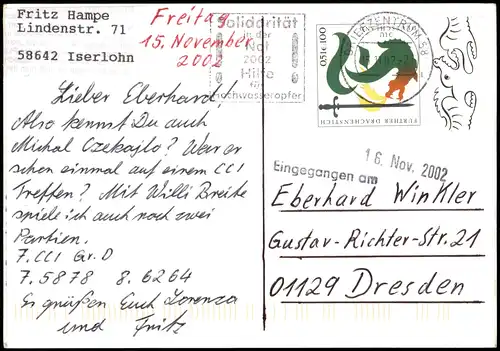 Fritz Hampe
Lindenstr. 71
58642 Iserlohn
Freitag
15. November
2002
Solidarität
in der
Not
2002
Hilfe
für
Hochwasseropfer
BRIEFZENTRUM 58
0,51€ 100
FURTHER DRACHENSTICH
Lieber Eberhard!
Also kennst Du auch
Michal Czekajlo? War er
schon einmal auf einem CCI
Treffen? Mit Willi Breite
spiele ich auch noch zwei
Partien.
7. CCI Gr. D
7. 5878 8. 6264
Es grüßen Euch Lorenza
und Fritz
Eingegangen am
16. Nov. 2002
Eberhard Winkler
Gustav-Richter-Str. 21
01129 Dresden